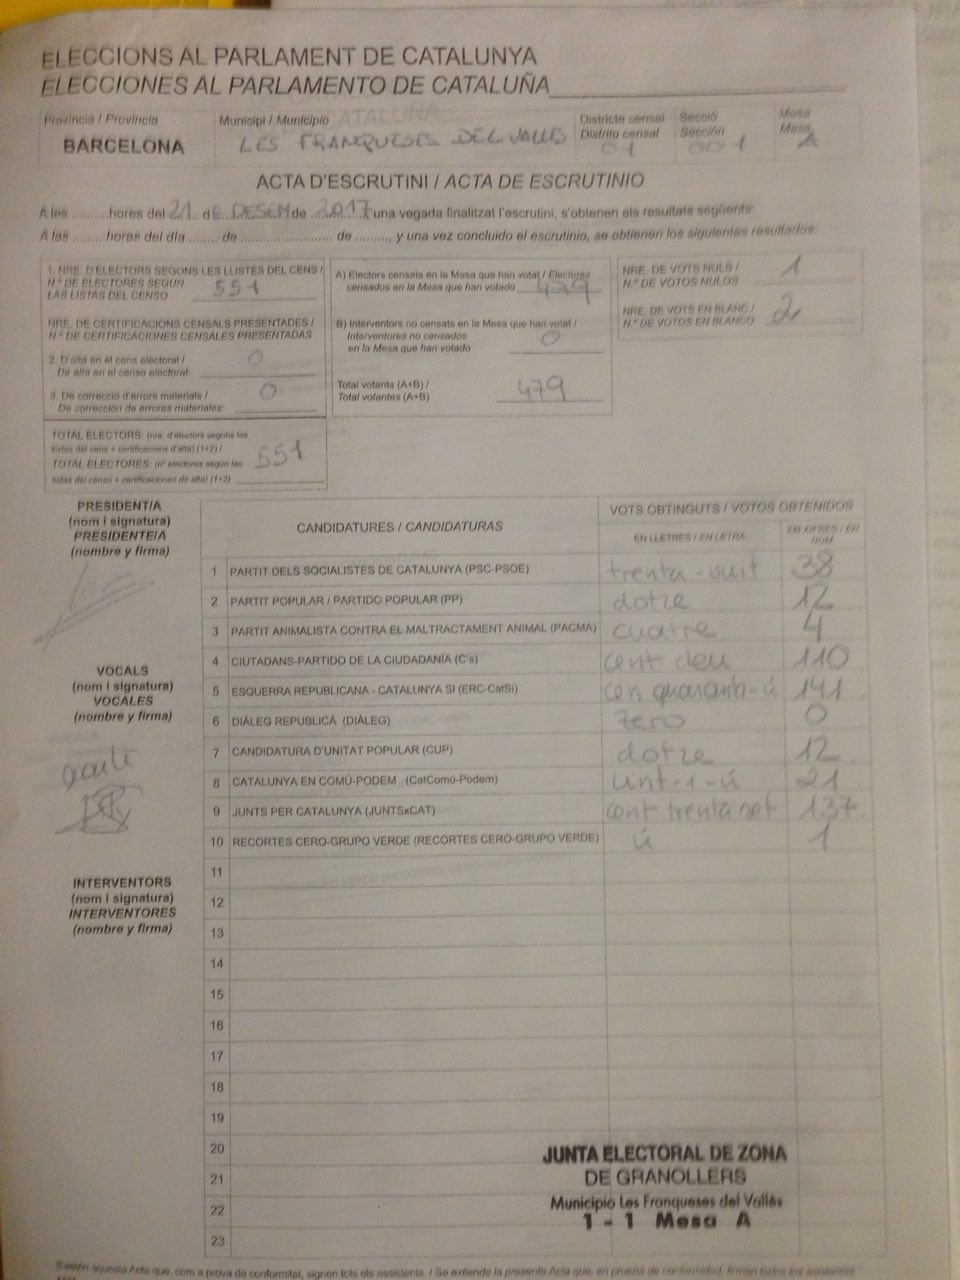 ELECCIONS AL PARLAMENT DE CATALUNYA
ELECCIONES AL PARLAMENTO DE CATALUÑA
Província / Provincia
BARCELONA
Municipi / Municipio
LES FRANQUESES DEL VALLES
Districte censal
Distrito censal
01
Secció
Sección
001
Mesa
Mesa
A
ACTA D'ESCRUTINI / ACTA DE ESCRUTINIO
A les .........hores del 21 de DESEM de 2017, una vegada finalitzat l'escrutini, s'obtenen els resultats següents:
A las .........hores del día ....... de ...................... de ........, y una vez concluido el escrutinio, se obtienen los siguientes resultados:
1. NRE. D'ELECTORS SEGONS LES LLISTES DEL CENS /
N.º DE ELECTORES SEGÚN
LAS LISTAS DEL CENSO 551
NRE. DE CERTIFICACIONS CENSALS PRESENTADES /
N.º DE CERTIFICACIONES CENSALES PRESENTADAS
2. D'alta en el cens electoral /
De alta en el censo electoral: 0
3. De correcció d'errors materials /
De corrección de errores materiales: 0
TOTAL ELECTORS: (nre. d'electors segons les
llistes del cens + certificacions d'alta) (1+2) /
TOTAL ELECTORES: (nº electores según las
listas del censo + certificaciones de alta) (1+2) 551
A) Electors censats en la Mesa que han votat / Electores
censados en la Mesa que han votado 479
B) Interventors no censats en la Mesa que han votat /
Interventores no censados
en la Mesa que han votado 0
Total votants (A+B) /
Total votantes (A+B) 479
NRE. DE VOTS NULS /
N.º DE VOTOS NULOS 1
NRE. DE VOTS EN BLANC /
N.º DE VOTOS EN BLANCO 2
PRESIDENT/A
(nom i signatura)
PRESIDENTE/A
(nombre y firma)
VOCALS
(nom i signatura)
VOCALES
(nombre y firma)
INTERVENTORS
(nom i signatura)
INTERVENTORES
(nombre y firma)
CANDIDATURES / CANDIDATURAS
VOTS OBTINGUTS / VOTOS OBTENIDOS
EN LLETRES / EN LETRA
EN XIFRES / EN
NÚM.
1 PARTIT DELS SOCIALISTES DE CATALUNYA (PSC-PSOE) trenta-vuit 38
2 PARTIT POPULAR / PARTIDO POPULAR (PP) dotze 12
3 PARTIT ANIMALISTA CONTRA EL MALTRACTAMENT ANIMAL (PACMA) cuatre 4
4 CIUTADANS-PARTIDO DE LA CIUDADANÍA (C's) cent deu 110
5 ESQUERRA REPUBLICANA - CATALUNYA SÍ (ERC-CatSí) cen quaranta-ú 141
6 DIÀLEG REPUBLICÀ (DIÀLEG) zero 0
7 CANDIDATURA D'UNITAT POPULAR (CUP) dotze 12
8 CATALUNYA EN COMÚ-PODEM (CatComú-Podem) vint-i-ú 21
9 JUNTS PER CATALUNYA (JUNTSxCAT) cent trenta set 137
10 RECORTES CERO-GRUPO VERDE (RECORTES CERO-GRUPO VERDE) ú 1
11
12
13
14
15
16
17
18
19
20
21
22
23
JUNTA ELECTORAL DE ZONA
DE GRANOLLERS
Municipio Les Franqueses del Vallès
1 - 1 Mesa A
S'estén aquesta Acta que, com a prova de conformitat, signen tots els assistents. / Se extiende la presente Acta que, en prueba de conformidad, firman todos los asistentes